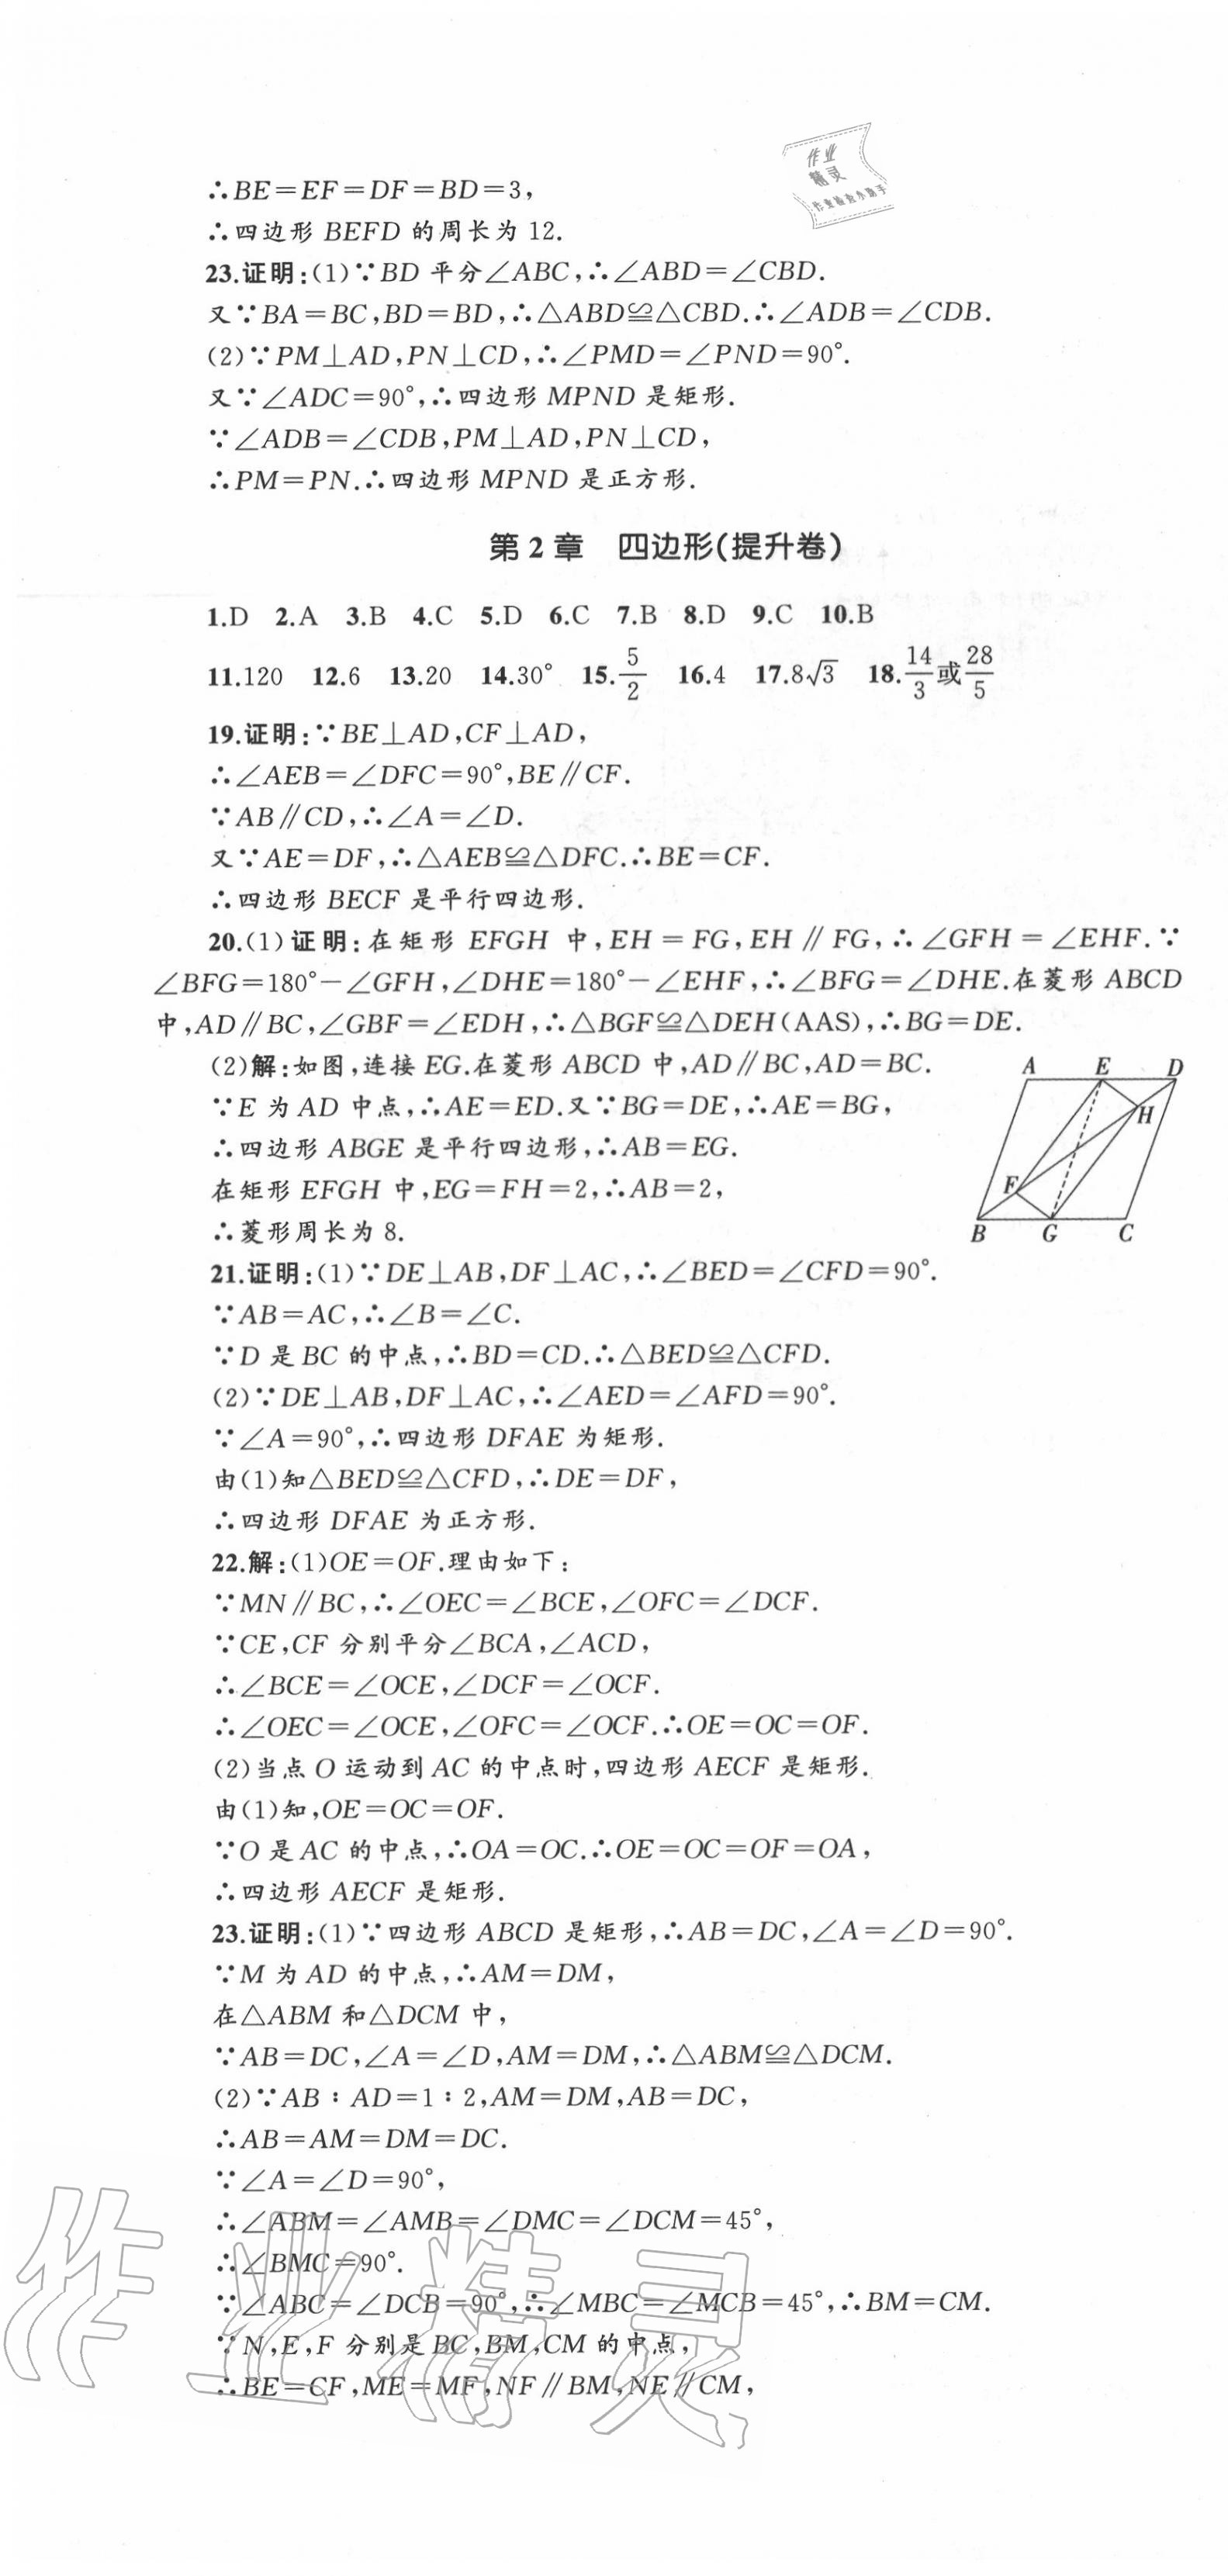 作业
精灵
作业检查小助手
∴BE=EF=DF=BD=3,
∴四边形 BEFD 的周长为 12.
23.证明:(1)∵BD 平分∠ABC,∴∠ABD=∠CBD.
又∵BA=BC,BD=BD,∴△ABD≌△CBD.∴∠ADB=∠CDB.
(2)∵PM⊥AD,PN⊥CD,∴∠PMD=∠PND=90°.
又∵∠ADC=90°,∴四边形 MPND 是矩形.
∵∠ADB=∠CDB,PM⊥AD,PN⊥CD,
∴PM=PN.∴四边形 MPND 是正方形.
第 2 章 四边形(提升卷)
1.D 2.A 3.B 4.C 5.D 6.C 7.B 8.D 9.C 10.B
11.120 12.6 13.20 14.30° 15.5/2 16.4 17.8√3 18.14/3或28/5
19.证明:∵BE⊥AD,CF⊥AD,
∴∠AEB=∠DFC=90°,BE∥CF.
∵AB∥CD,∴∠A=∠D.
又∵AE=DF,∴△AEB≌△DFC.∴BE=CF.
∴四边形 BECF 是平行四边形.
20.(1)证明:在矩形 EFGH 中,EH=FG,EH∥FG,∴∠GFH=∠EHF.∵
∠BFG=180°-∠GFH,∠DHE=180°-∠EHF,∴∠BFG=∠DHE.在菱形 ABCD
中,AD∥BC,∠GBF=∠EDH,∴△BGF≌△DEH(AAS),∴BG=DE.
(2)解:如图,连接 EG.在菱形 ABCD 中,AD∥BC,AD=BC.
∵E 为 AD 中点,∴AE=ED.又∵BG=DE,∴AE=BG,
∴四边形 ABGE 是平行四边形,∴AB=EG.
在矩形 EFGH 中,EG=FH=2,∴AB=2,
∴菱形周长为 8.
A E D
H
F
B G C
21.证明:(1)∵DE⊥AB,DF⊥AC,∴∠BED=∠CFD=90°.
∵AB=AC,∴∠B=∠C.
∵D 是 BC 的中点,∴BD=CD.∴△BED≌△CFD.
(2)∵DE⊥AB,DF⊥AC,∴∠AED=∠AFD=90°.
∵∠A=90°,∴四边形 DFAE 为矩形.
由(1)知△BED≌△CFD,∴DE=DF,
∴四边形 DFAE 为正方形.
22.解:(1)OE=OF.理由如下:
∵MN∥BC,∴∠OEC=∠BCE,∠OFC=∠DCF.
∵CE,CF 分别平分∠BCA,∠ACD,
∴∠BCE=∠OCE,∠DCF=∠OCF.
∴∠OEC=∠OCE,∠OFC=∠OCF.∴OE=OC=OF.
(2)当点 O 运动到 AC 的中点时,四边形 AECF 是矩形.
由(1)知,OE=OC=OF.
∵O 是 AC 的中点,∴OA=OC.∴OE=OC=OF=OA,
∴四边形 AECF 是矩形.
23.证明:(1)∵四边形 ABCD 是矩形,∴AB=DC,∠A=∠D=90°.
∵M 为 AD 的中点,∴AM=DM,
在△ABM 和△DCM 中,
∵AB=DC,∠A=∠D,AM=DM,∴△ABM≌△DCM.
(2)∵AB∶AD=1∶2,AM=DM,AB=DC,
∴AB=AM=DM=DC.
∵∠A=∠D=90°,
∴∠ABM=∠AMB=∠DMC=∠DCM=45°,
∴∠BMC=90°.
∵∠ABC=∠DCB=90°,∴∠MBC=∠MCB=45°,∴BM=CM.
∵N,E,F 分别是 BC,BM,CM 的中点,
∴BE=CF,ME=MF,NF∥BM,NE∥CM,
作业精灵